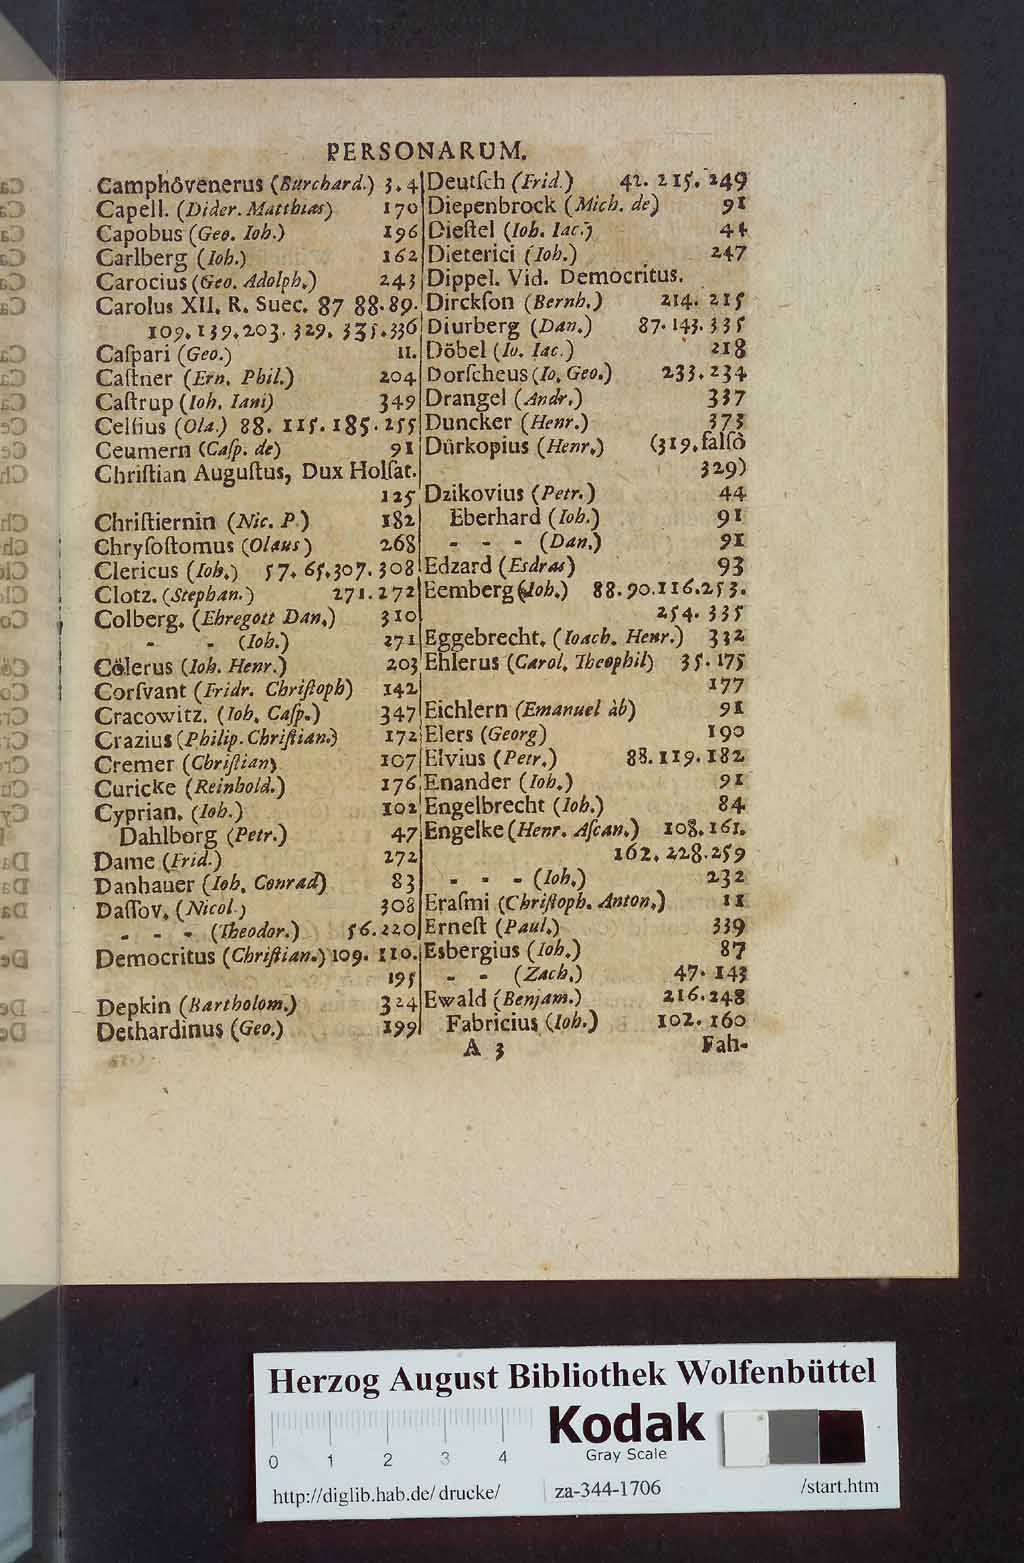 PERSONARUM.
Camphövenerus (Burchard.) 3. 4
Capell. (Dider. Matthias) 170
Capobus (Geo. Ioh.) 196
Carlberg (Ioh.) 162
Carocius (Geo. Adolph.) 243
Carolus XII. R. Suec. 87 88. 89.
109. 139. 203. 329. 335. 336
Caſpari (Geo.) 11.
Caſtner (Ern. Phil.) 204
Caſtrup (Ioh. Iani) 349
Celſius (Ola.) 88. 115. 185. 255
Ceumern (Caſp. de) 91
Chriſtian Auguſtus, Dux Holſat.
125
Chriſtiernin (Nic. P.) 182
Chryſoſtomus (Olaus) 268
Clericus (Ioh.) 57. 65. 307. 308
Clotz. (Stephan.) 271. 272
Colberg. (Ehregott Dan.) 310
- - (Ioh.) 271
Cölerus (Ioh. Henr.) 203
Corſvant (Fridr. Chriſtoph) 142
Cracowitz. (Ioh. Caſp.) 347
Crazius (Philip. Chriſtian.) 172
Cremer (Chriſtian) 107
Curicke (Reinhold.) 176
Cyprian. (Ioh.) 102
Dahlborg (Petr.) 47
Dame (Frid.) 272
Danhauer (Ioh. Conrad) 83
Daſſov. (Nicol.) 308
- - - (Theodor.) 56. 220
Democritus (Chriſtian.) 109. 110.
195
Depkin (Bartholom.) 324
Dethardinus (Geo.) 199
Deutſch (Frid.) 42. 215. 249
Diepenbrock (Mich. de) 91
Dieſtel (Ioh. Iac.) 44
Dieterici (Ioh.) 247
Dippel. Vid. Democritus.
Dirckſon (Bernh.) 214. 215
Diurberg (Dan.) 87. 143. 335
Döbel (Io. Iac.) 218
Dorſcheus (Io. Geo.) 233. 234
Drangel (Andr.) 337
Duncker (Henr.) 373
Dürkopius (Henr.) (319. falſò
329)
Dzikovius (Petr.) 44
Eberhard (Ioh.) 91
- - - (Dan.) 91
Edzard (Esdras) 93
Eemberg (Ioh.) 88. 90. 116. 253.
254. 335
Eggebrecht. (Ioach. Henr.) 332
Ehlerus (Carol. Theophil) 35. 175
177
Eichlern (Emanuel àb) 91
Elers (Georg) 190
Elvius (Petr.) 88. 119. 182
Enander (Ioh.) 91
Engelbrecht (Ioh.) 84
Engelke (Henr. Aſcan.) 108. 161.
162. 228. 259
- - - (Ioh.) 232
Eraſmi (Chriſtoph. Anton.) 11
Erneſt (Paul.) 339
Esbergius (Ioh.) 87
- - (Zach.) 47. 143
Ewald (Benjam.) 216. 248
Fabricius (Ioh.) 102. 160
A 3 Fah-
Herzog August Bibliothek Wolfenbüttel
Kodak
Gray Scale
0 1 2 3 4
http://diglib.hab.de/drucke/ za-344-1706 /start.htm